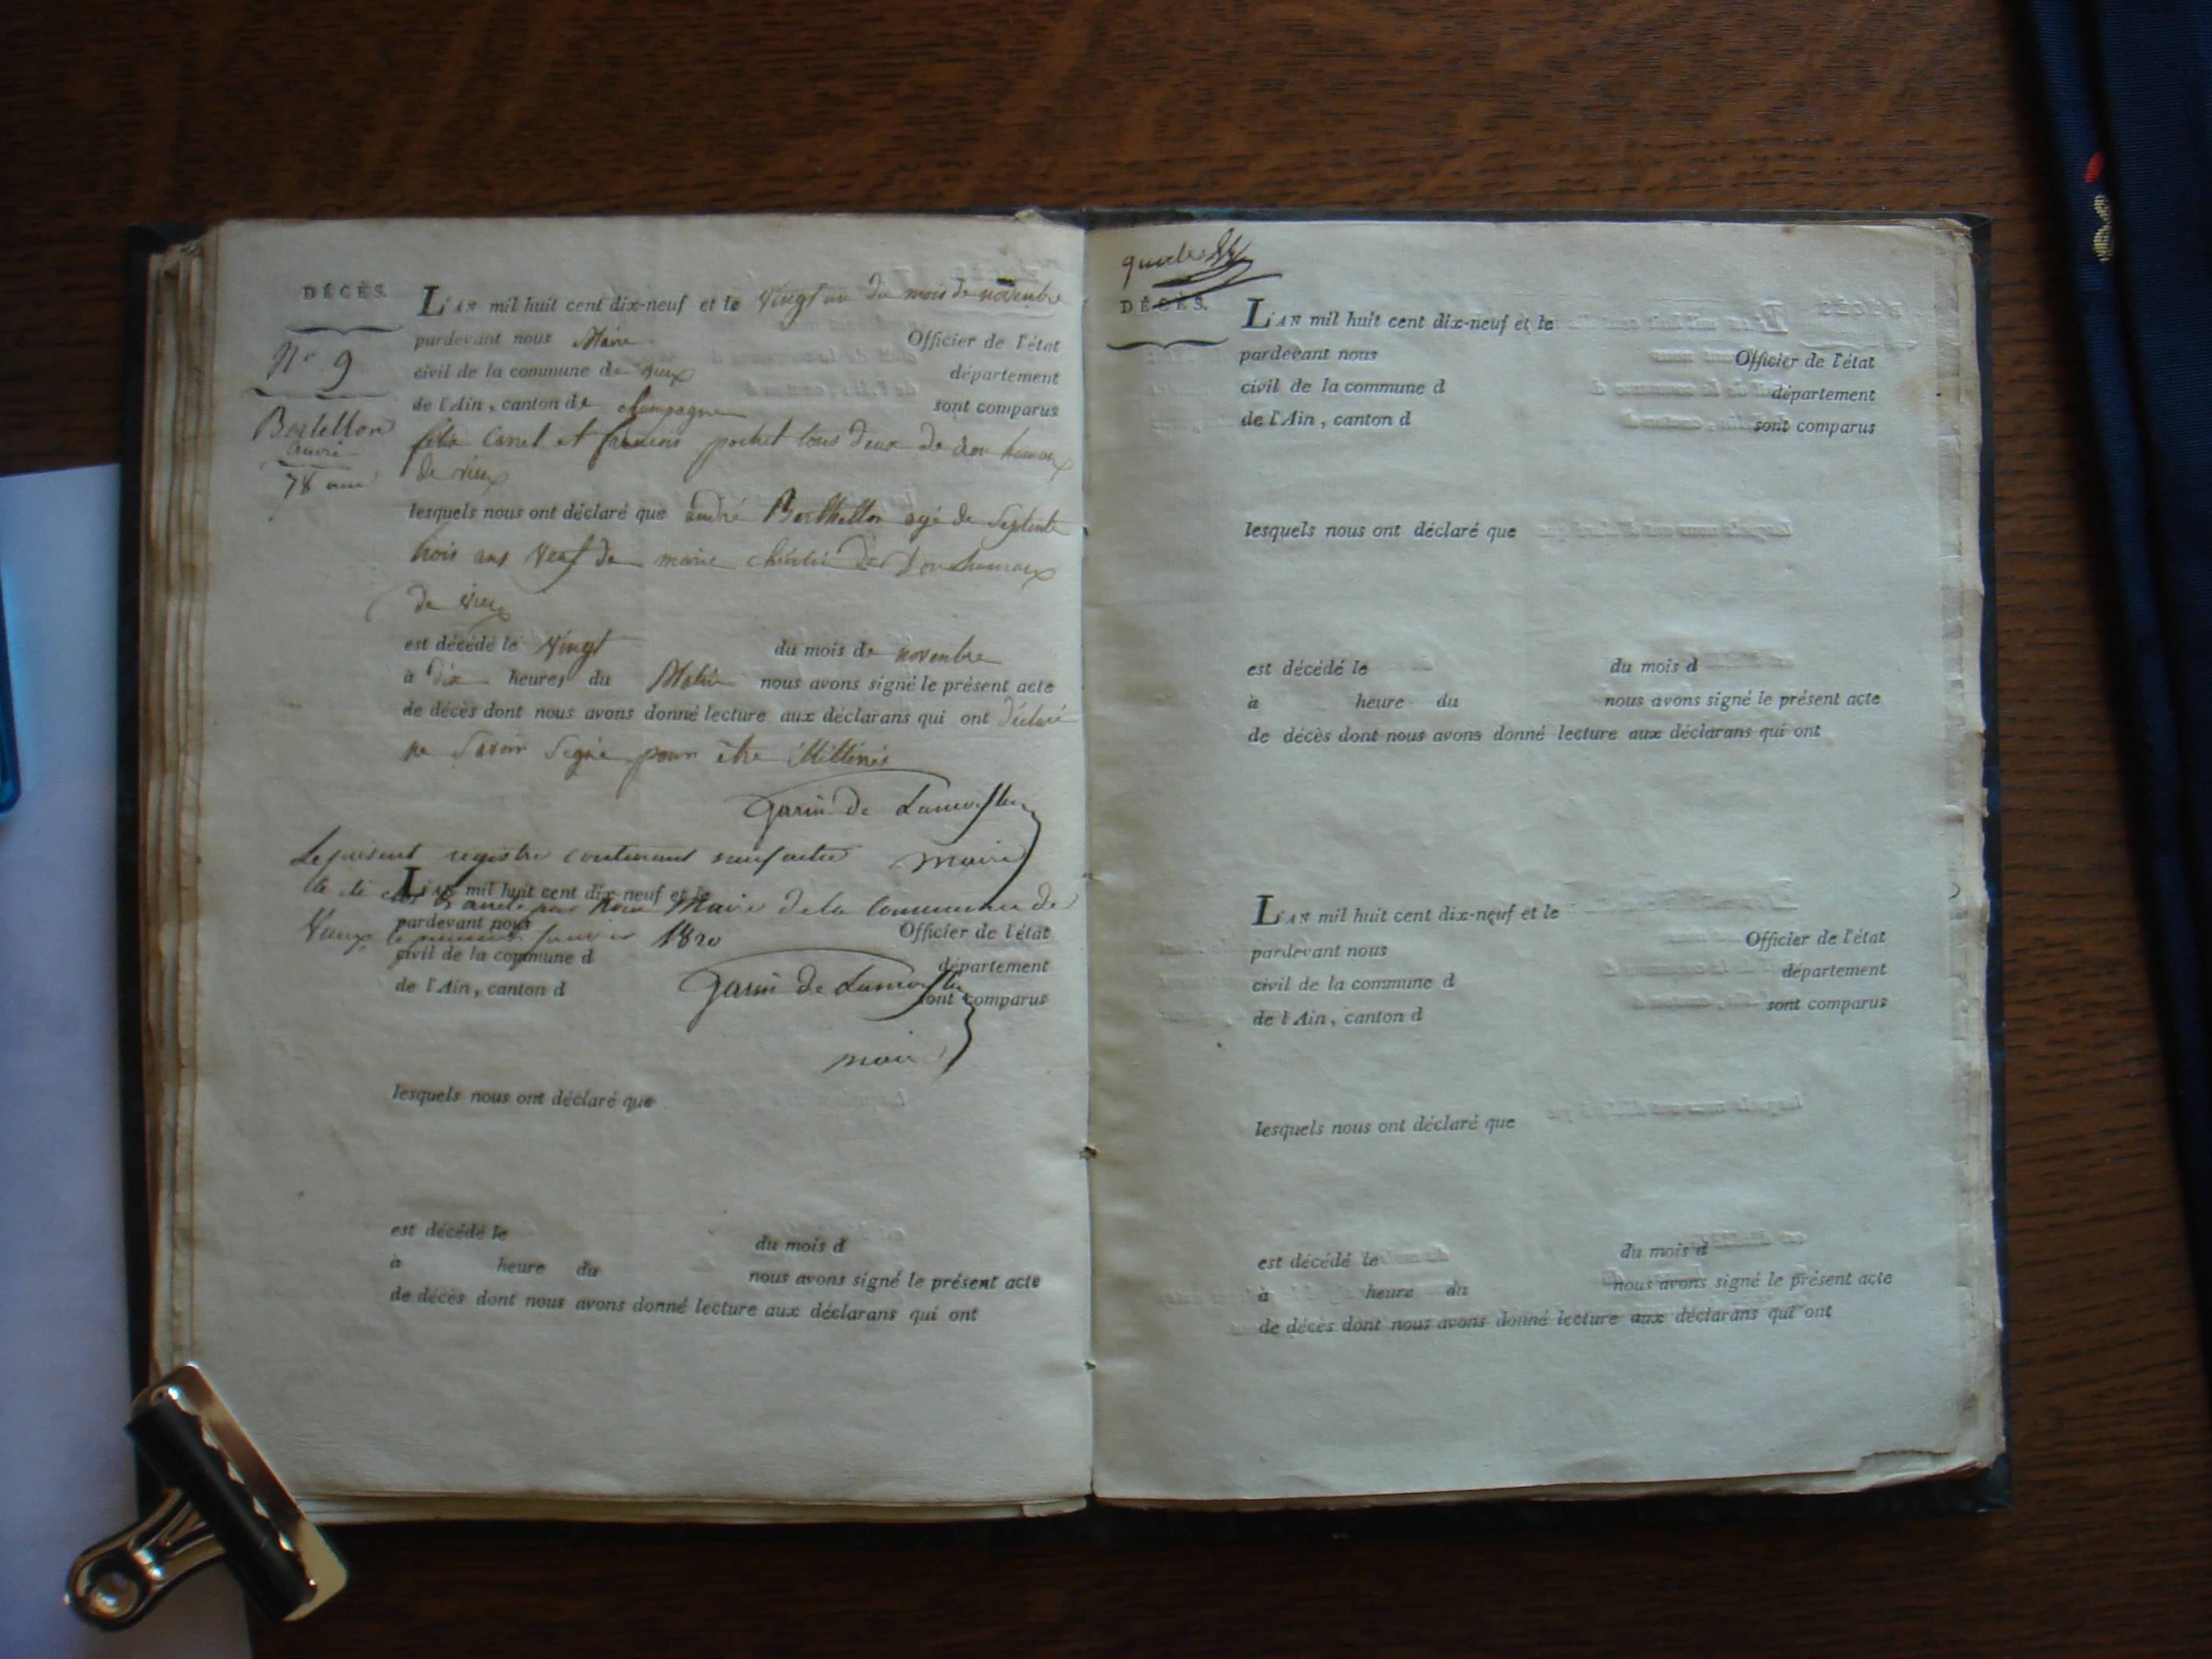 DÉCÈS.
N.º 9
Bertellon
andré
78 ans
L'AN mil huit cent dix-neuf et le vingt un du mois de novembre
pardevant nous Maire Officier de l'état
civil de la commune de vieux département
de l'Ain, canton de champagne sont comparus
felix Carrel et francois pochet tous deux de
de vieux
lesquels nous ont déclaré que andré Berthellon agé de septente
trois ans veuf de marie de
de vieux
est décédé le vingt du mois de novembre
à dix heures du Matin nous avons signé le présent acte
de décès dont nous avons donné lecture aux déclarans qui ont déclaré
ne savoir signé pour être illittérés
garin de Lamorflan
maire
Le présent registre contenant neuf actes
L'AN mil huit cent dix-neuf et le
a été clos & arrêté par Nous Maire de la Commune de
pardevant nous Officier de l'état
Vieux le premier janvier 1820
civil de la commune d département
de l'Ain, canton d sont comparus
garin de Lamorflan
maire
lesquels nous ont déclaré que
est décédé le du mois d
à heure du nous avons signé le présent acte
de décès dont nous avons donné lecture aux déclarans qui ont
DÉCÈS.
L'AN mil huit cent dix-neuf et le
pardevant nous Officier de l'état
civil de la commune d département
de l'Ain, canton d sont comparus
lesquels nous ont déclaré que
est décédé le du mois d
à heure du nous avons signé le présent acte
de décès dont nous avons donné lecture aux déclarans qui ont
L'AN mil huit cent dix-neuf et le
pardevant nous Officier de l'état
civil de la commune d département
de l'Ain, canton d sont comparus
lesquels nous ont déclaré que
est décédé le du mois d
à heure du nous avons signé le présent acte
de décès dont nous avons donné lecture aux déclarans qui ont